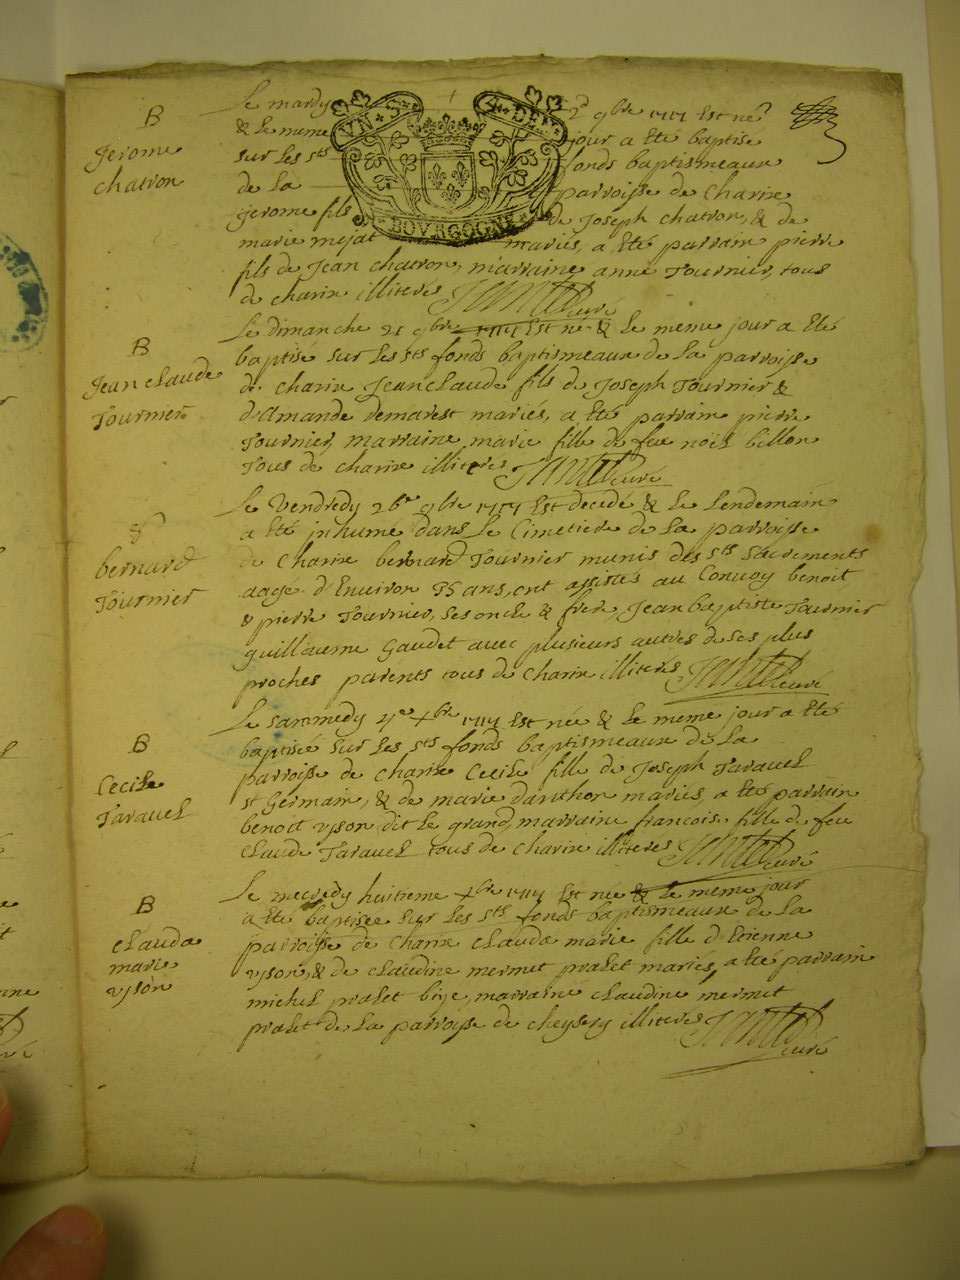 B
Jerome
chatron
Le mardy 2e 9bre 1717 Est né
& le meme jour a eté baptisé
sur les sts fonds baptismeaux
de La parroisse de Charix
jerome fils de Joseph chatron, & de
marie mejat mariés, a eté parrain pierre
fils de Jean chatron, marraine anne Tournier, tous
de charix illiterés curé
UN S DEN
BOURGOGNE
B
Jean claude
Tournier
Le dimanche 21 9bre 1717 Est né & Le meme jour a eté
baptisé sur Les sts fonds baptismeaux de La parroisse
de charix Jean Claude fils de Joseph Tournier &
d'Amande demarest mariés, a eté parrain pierre
Tournier, marraine marie fille de feu noël billon
Tous de charix illiterés curé
bernard
Tournier
Le Vendredy 26e 9bre 1717 Est decedé & Le Lendemain
a eté inhumé dans Le Cimetiere de La parroisse
de Charix bernard Tournier munis des sts Sacrements
aagé d'Environ 35 ans, ont assistés au Convoy benoit
& pierre Tournier, ses oncle & frere, Jean baptiste Tournier
guillaume Gaudet avec plusieurs autres de ses plus
proches parents tous de Charix illiterés curé
B
Cecile
Taravel
Le sammedy 4e xbre 1717 Est née & Le meme jour a eté
baptisée sur Les sts fonds baptismeaux de La
parroisse de charix Cecile fille de Joseph Taravel
st Germain, & de marie danthon mariés, a eté parrain
benoit yson dit Le grand, marraine francoise fille de feu
Claude Taravel tous de charix illiterés curé
B
clauda
marie
yson
Le mecredy huitieme xbre 1717 Est née & Le meme jour
a eté baptisée sur Les sts fonds baptismeaux de La
parroisse de Charix Clauda marie fille d'Etienne
yson, & de Claudine mermet pralet mariés, a eté parrain
michel pralet marraine Claudine mermet
pralet de La parroisse de cheysery illiterés
curé